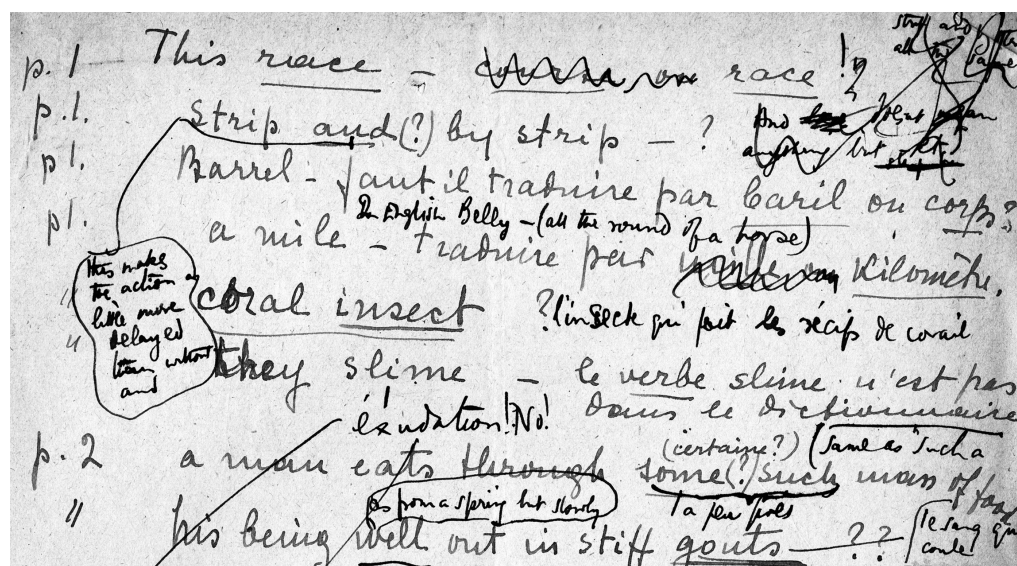 strip and
all the
same
p. 1 This race – course or race !?
p. 1. Strip and (?) by strip – ?
And
anything but
p 1. Barrel – faut il traduire par baril ou corps?
In English Belly – (all the round of a horse)
p 1. a mile – traduire par Kilomètre.
this makes
the action a
little more
delayed
than without
and
" coral insect ? l'insecte qui fait les récifs de corail
" they slime – le verbe slime n'est pas
dans le dictionnaire
éxudation! No!
(certaine?) (same as "such a
p. 2 a man eats through some (?) such mass of food
as from a spring but slowly
à peu près
" his being well out in stiff gouts — ??
le sang qui
coule